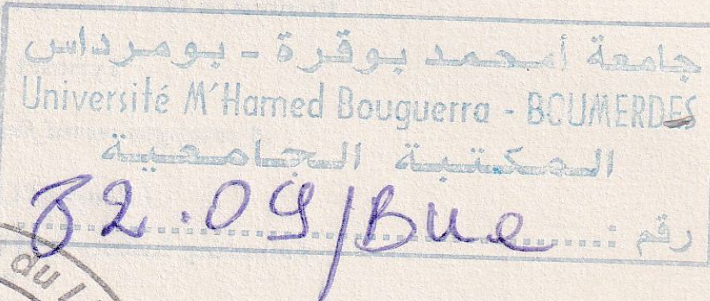 جامعة أمحمد بوقرة - بومرداس
Université M'Hamed Bouguerra - BOUMERDES
المكتبة الجامعية
رقم : 32.09/Bue
du